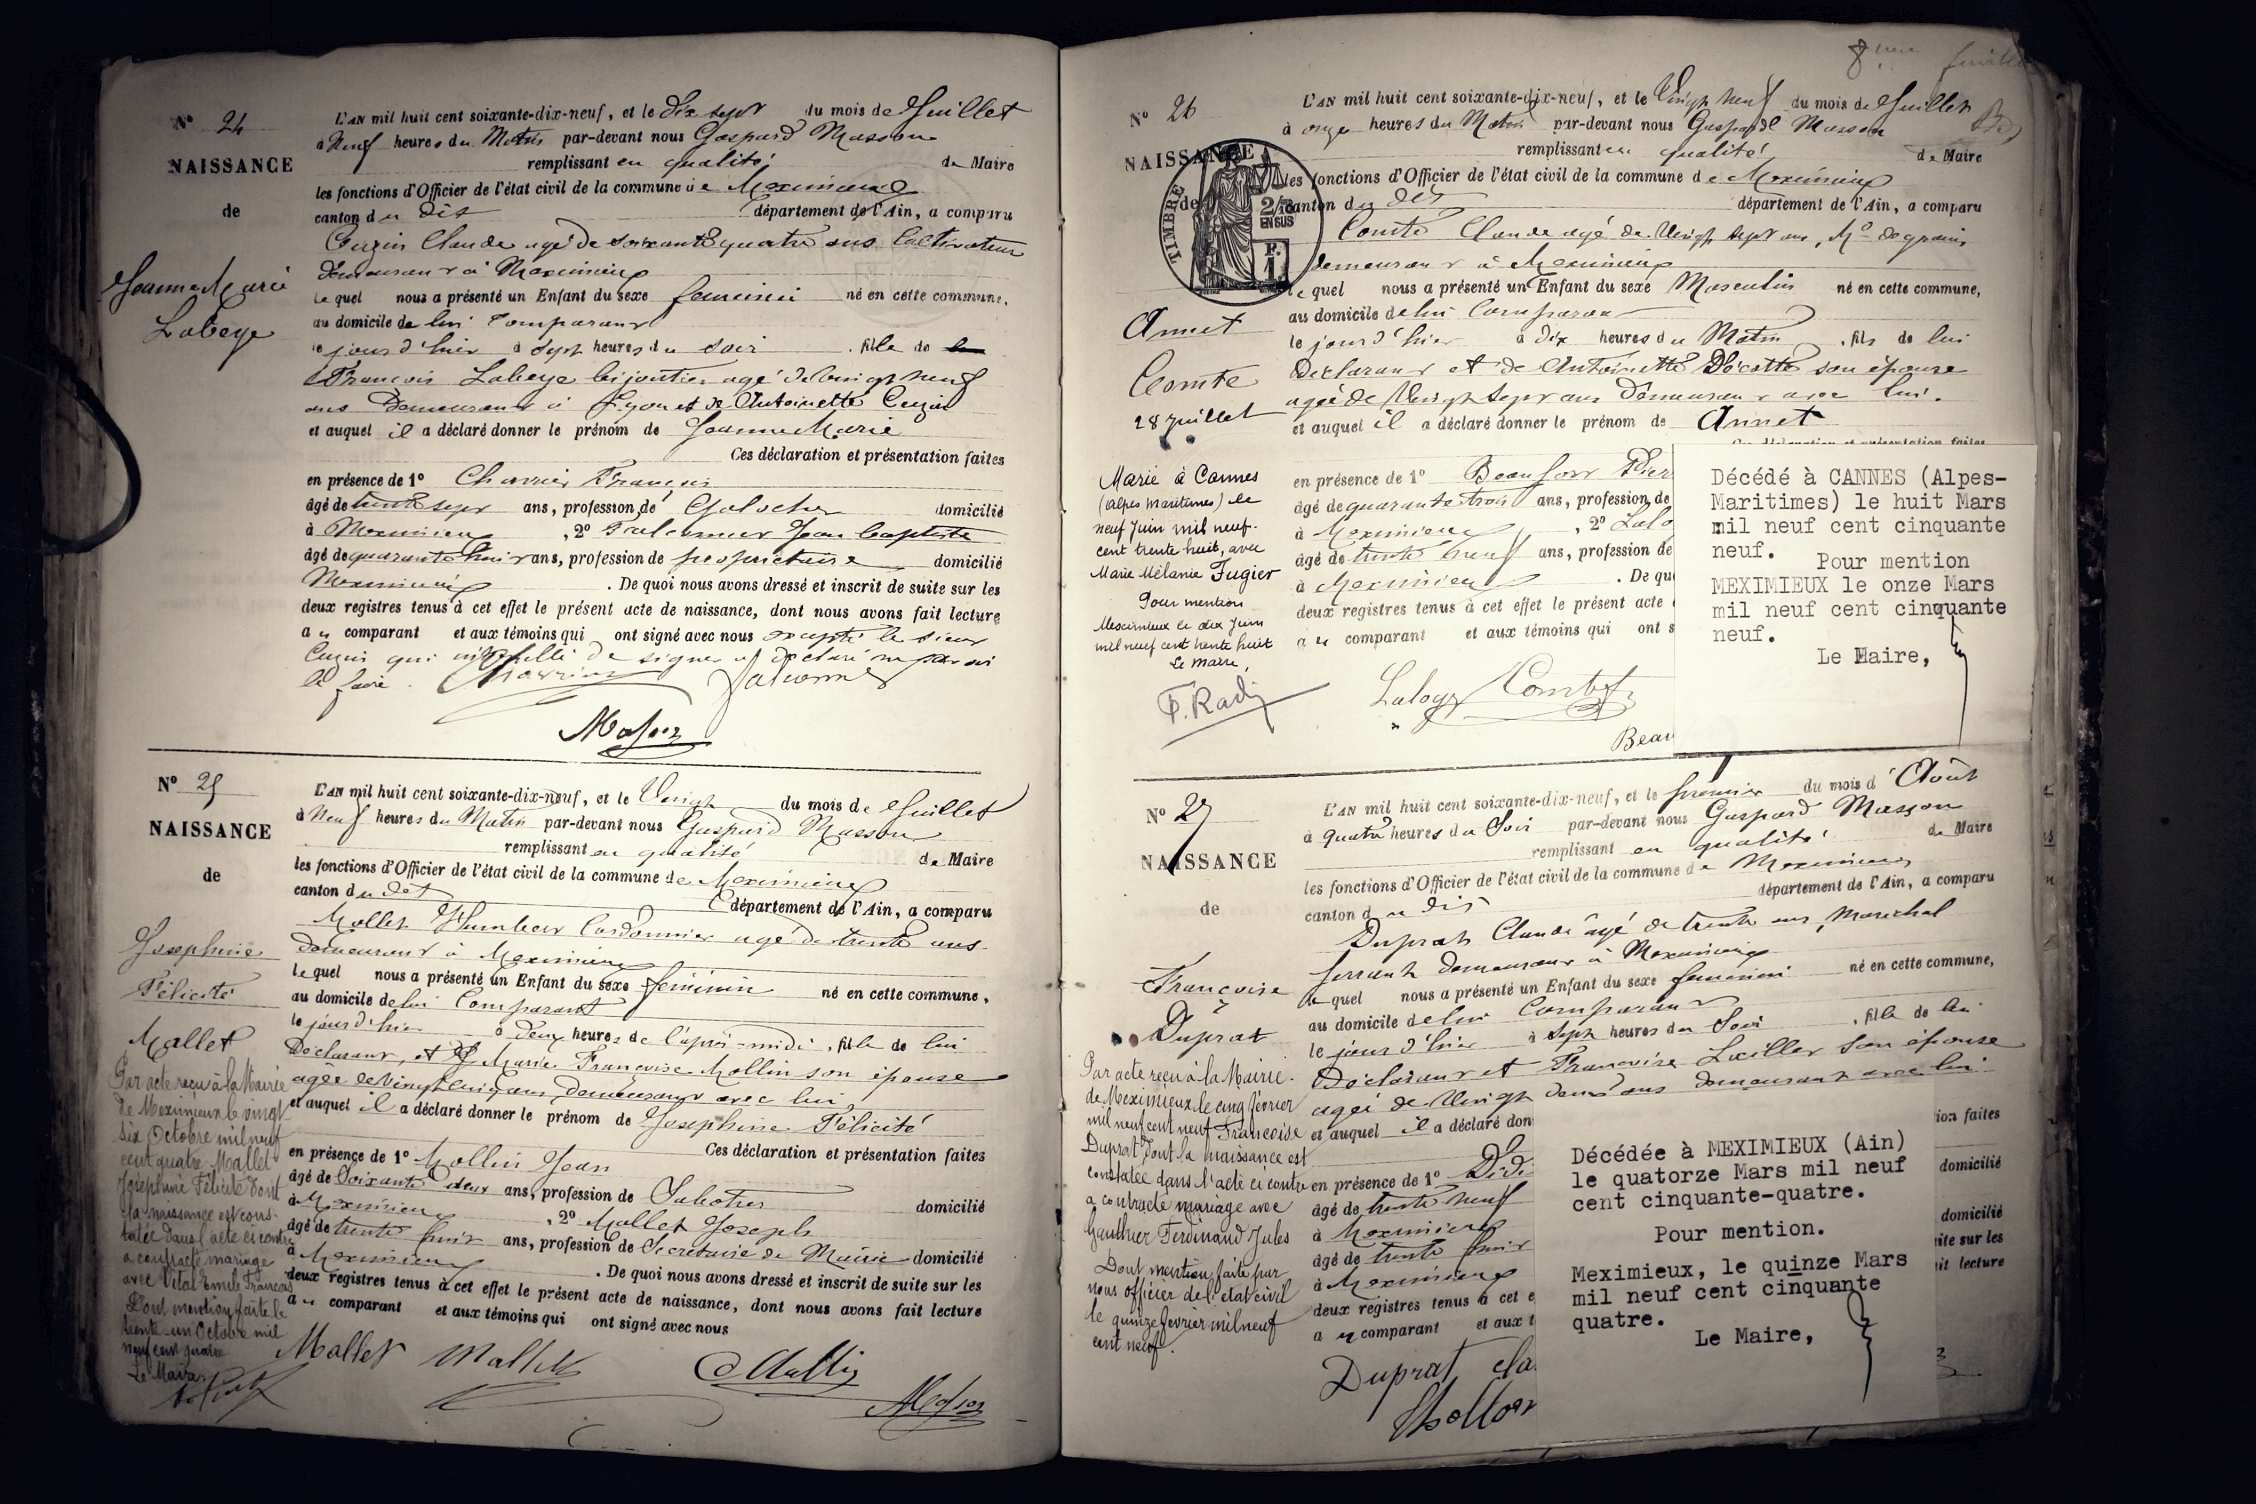 N° 24
NAISSANCE
de
Jeanne Marie
Labeye
L'AN mil huit cent soixante-dix-neuf, et le dix sept du mois de Juillet
à Neuf heures du Matin par-devant nous Gaspard Masson
remplissant en qualité de Maire
les fonctions d'Officier de l'état civil de la commune de Meximieux
canton du dit département de l'Ain, a comparu
Cuzin Claude agé de soixante quatre ans Cultivateur
demeurant à Meximieux
le quel nous a présenté un Enfant du sexe feminin né en cette commune,
au domicile de lui Comparant
le jour d'hier à Sept heures du soir fille de
François Labeye bijoutier agé de vingt neuf
ans Demeurant à Lyon et de Antoinette Cuzin
et auquel il a déclaré donner le prénom de Jeanne Marie
Ces déclaration et présentation faites
en présence de 1° Charrier François
âgé de trente sept ans, profession de Galocher domicilié
à Meximieux, 2° Falconnier Jean baptiste
âgé de quarante huit ans, profession de propriétaire domicilié
Meximieux. De quoi nous avons dressé et inscrit de suite sur les
deux registres tenus à cet effet le présent acte de naissance, dont nous avons fait lecture
au comparant et aux témoins qui ont signé avec nous excepté le sieur
Cuzin qui de signer a déclaré ne pas
le faire.
Charrier Falconnier
Masson
N° 25
NAISSANCE
de
Josephine
Félicité
Mallet
L'AN mil huit cent soixante-dix-neuf, et le Vingt du mois de Juillet
à Neuf heures du Matin par-devant nous Gaspard Masson
remplissant en qualité de Maire
les fonctions d'Officier de l'état civil de la commune de Meximieux
canton du dit département de l'Ain, a comparu
Mallet Humbert Cordonnier agé de trente ans
demeurant à Meximieux
le quel nous a présenté un Enfant du sexe féminin né en cette commune,
au domicile de lui Comparant
le jour d'hier à deux heures de l'après-midi, fille de lui
Déclarant, et de Marie Françoise Mollin son épouse
agée de vingt cinq ans, demeurant avec lui
et auquel il a déclaré donner le prénom de Josephine Félicité
Ces déclaration et présentation faites
en présence de 1° Mollin Jean
âgé de Soixante deux ans, profession de Sabotier domicilié
à Meximieux, 2° Mallet Joseph
âgé de trente huit ans, profession de Secrétaire de Mairie domicilié
à Meximieux. De quoi nous avons dressé et inscrit de suite sur les
deux registres tenus à cet effet le présent acte de naissance, dont nous avons fait lecture
au comparant et aux témoins qui ont signé avec nous
Mallet Mallet Mollin
Masson
Par acte reçu à la Mairie
de Meximieux le vingt
six Octobre mil neuf
cent quatre Mallet
Josephine Félicité dont
la naissance est cons-
tatée dans l'acte ci contre
a contracté mariage
avec Vital Emile François
Dont mention faite le
trente-un Octobre mil
neuf cent quatre
Le Maire
8ème feuillet
N° 26
NAISSANCE
de
TIMBRE
2/10
EN SUS
F.
1
Annet
Comte
28 Juillet
L'AN mil huit cent soixante-dix-neuf, et le Vingt neuf du mois de Juillet
à onze heures du Matin par-devant nous Gaspard Masson
remplissant en qualité de Maire
les fonctions d'Officier de l'état civil de la commune de Meximieux
canton du dit département de l'Ain, a comparu
Comte Claude agé de Vingt sept ans, Md de grains
demeurant à Meximieux
le quel nous a présenté un Enfant du sexe Masculin né en cette commune,
au domicile de lui Comparant
le jour d'hier à dix heures du Matin, fils de lui
Déclarant et de Antoinette Décotte son épouse
agée de Vingt sept ans Demeurant avec lui.
et auquel il a déclaré donner le prénom de Annet
en présence de 1° Beaufort
âgé de quarante trois ans, profession de
à Meximieux, 2°
âgé de trente neuf ans, profession de
à Meximieux. De qu
deux registres tenus à cet effet le présent acte
au comparant et aux témoins qui ont s
Laloge Comte
Beau
Marié à Cannes
(Alpes Maritimes) le
neuf Juin mil neuf-
cent trente huit, avec
Marie Mélanie Fugier
Pour mention
Meximieux le dix Juin
mil neuf cent trente huit
Le Maire,
Décédé à CANNES (Alpes-
Maritimes) le huit Mars
mil neuf cent cinquante
neuf.
Pour mention
MEXIMIEUX le onze Mars
mil neuf cent cinquante
neuf.
Le Maire,
N° 27
NAISSANCE
de
Françoise
Duprat
L'AN mil huit cent soixante-dix-neuf, et le premier du mois d'Août
à quatre heures du Soir par-devant nous Gaspard Masson
remplissant en qualité de Maire
les fonctions d'Officier de l'état civil de la commune de Meximieux
canton du dit département de l'Ain, a comparu
Duprat Claude âgé de trente ans, Maréchal
ferrant demeurant à Meximieux
le quel nous a présenté un Enfant du sexe feminin né en cette commune,
au domicile de lui Comparant
le jour d'hier à Sept heures du Soir, fille de lui
Déclarant et Françoise son épouse
agée de Vingt deux ans demeurant avec lui
et auquel il a déclaré don
ion faites
en présence de 1°
domicilié
âgé de trente neuf
à Meximieux
domicilié
âgé de trente huit
ite sur les
à Meximieux
it lecture
deux registres tenus à cet e
au comparant et aux t
Duprat Cla
Par acte reçu à la Mairie
de Meximieux le cinq février
mil neuf cent neuf Françoise
Duprat dont la naissance est
constatée dans l'acte ci contre
a contracté mariage avec
Gauthier Ferdinand Jules
Dont mention faite par
nous officier de l'état civil
le quinze février mil neuf
cent neuf.
Décédée à MEXIMIEUX (Ain)
le quatorze Mars mil neuf
cent cinquante-quatre.
Pour mention.
Meximieux, le quinze Mars
mil neuf cent cinquante
quatre.
Le Maire,